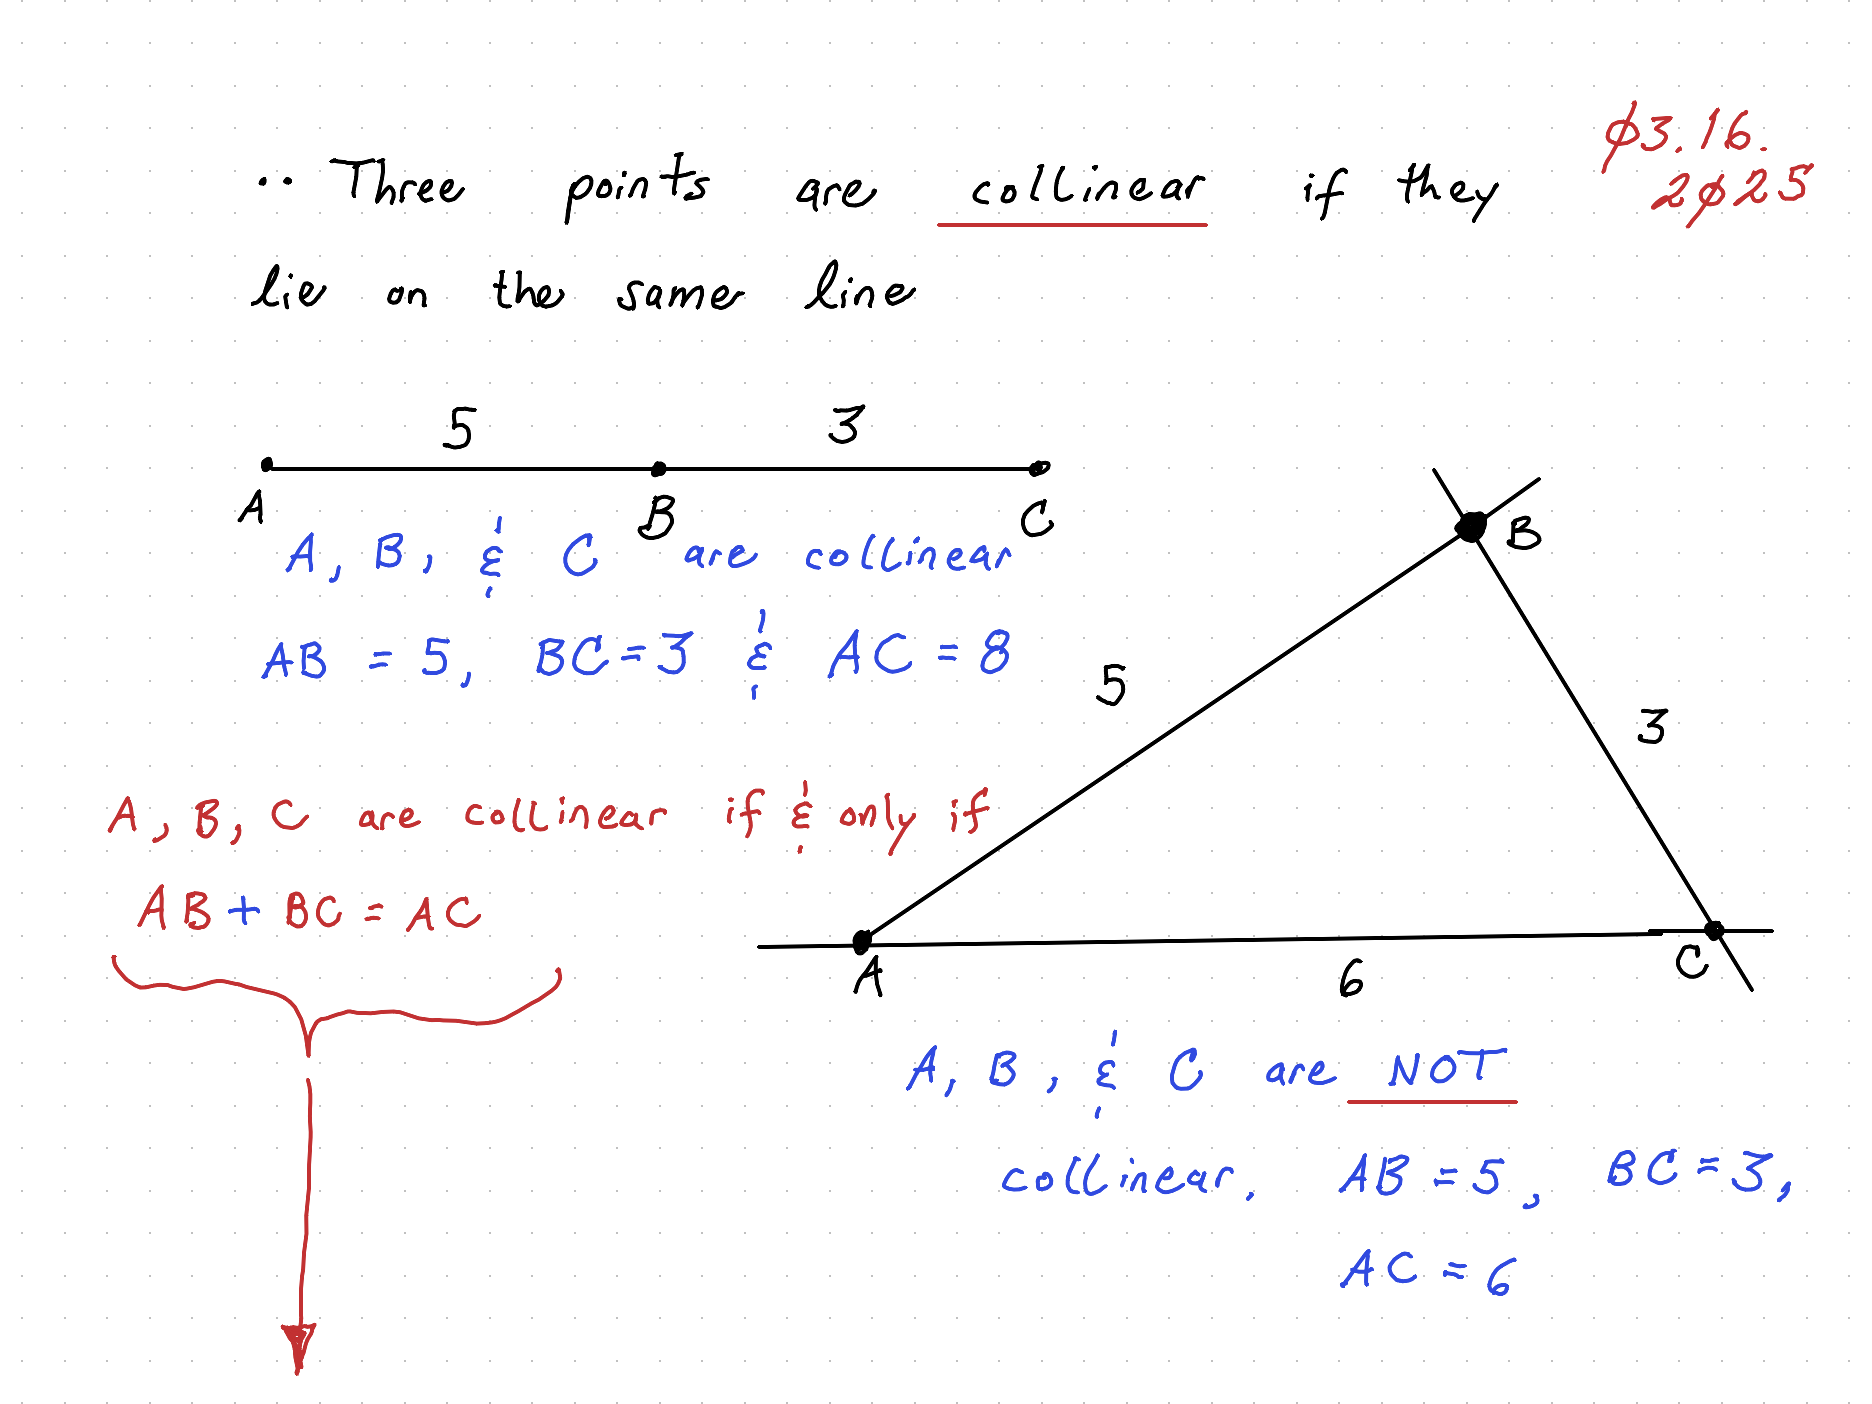 ·· Three points are collinear if they
lie on the same line
Ø3.16.
2Ø25
5 3
A B C
A, B, & C are collinear
AB = 5, BC = 3 & AC = 8
A, B, C are collinear if & only if
AB + BC = AC
B
5
3
A
6
C
A, B, & C are NOT
collinear. AB = 5, BC = 3,
AC = 6